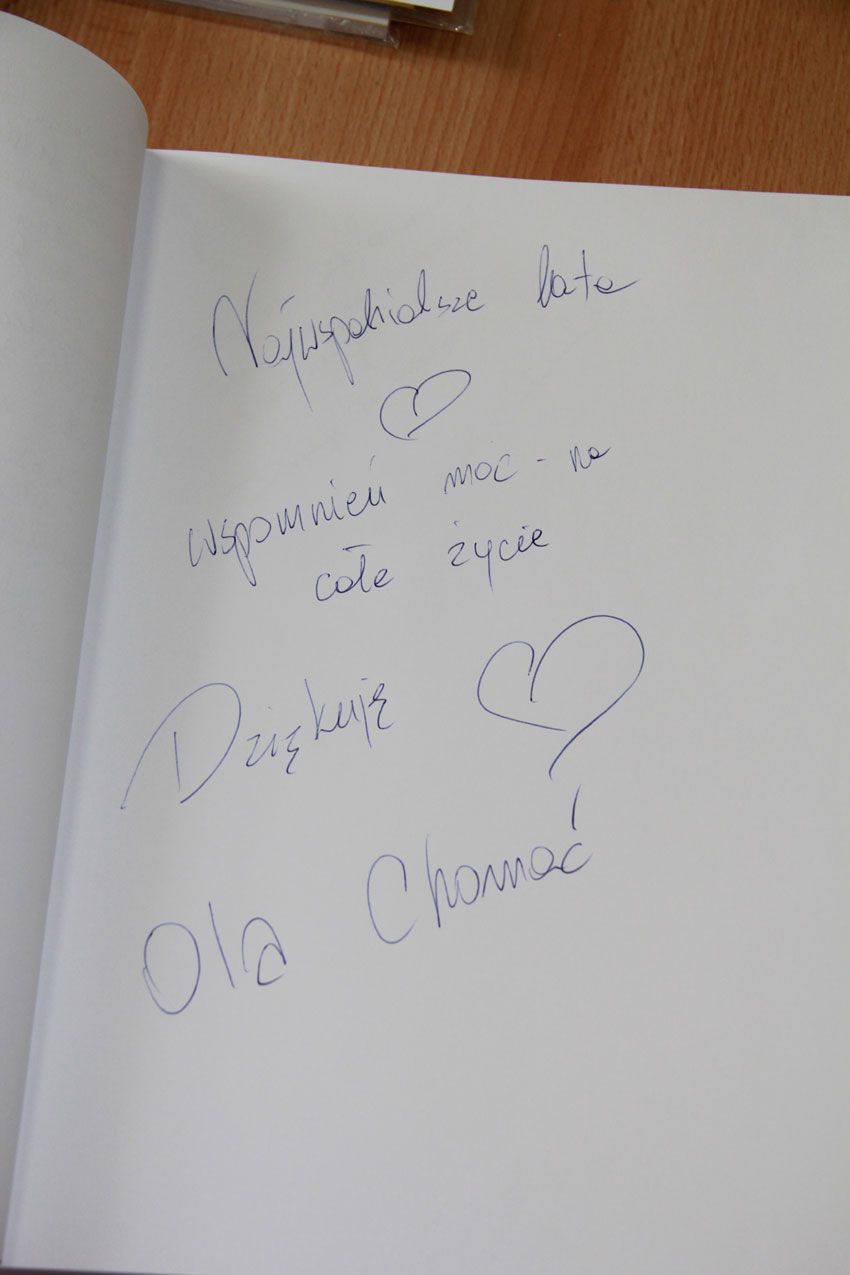 Najwspanialsze lata
wspomnień moc - na
całe życie
Dziękuję
Ola